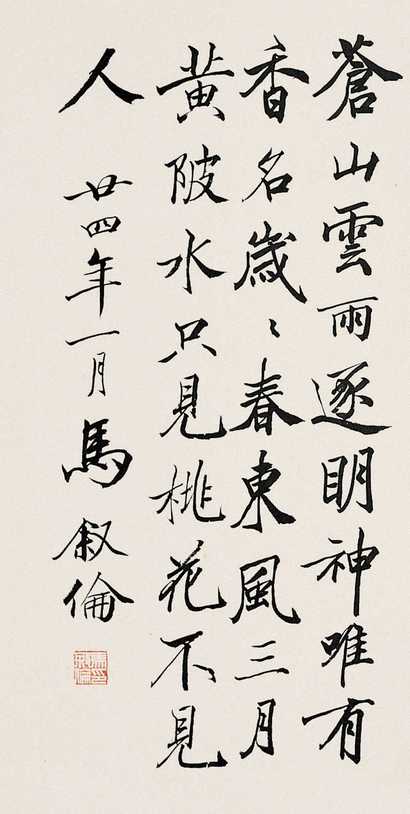 蒼山雲雨逐明神唯有
香名歲〻春東風三月
黄陂水只見桃花不見
人
廿四年一月馬叙倫